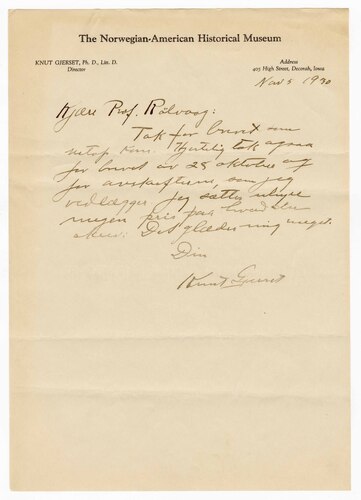 The Norwegian-American Historical Museum
KNUT GJERSET, Ph. D., Litt. D.
Director
Address
405 High Street, Decorah, Iowa
Nov 5 1930
Kjære Prof. Rölvaag:
Tak for brevet som
netop kom. Hjertelig tak ogsaa
for brevet av 25 oktober og
for avskriften, som jeg
vedlægger. Jeg sætter
megen pris paa hvad
skrev. Det glæder mig meget.
Din
Knut Gjerset